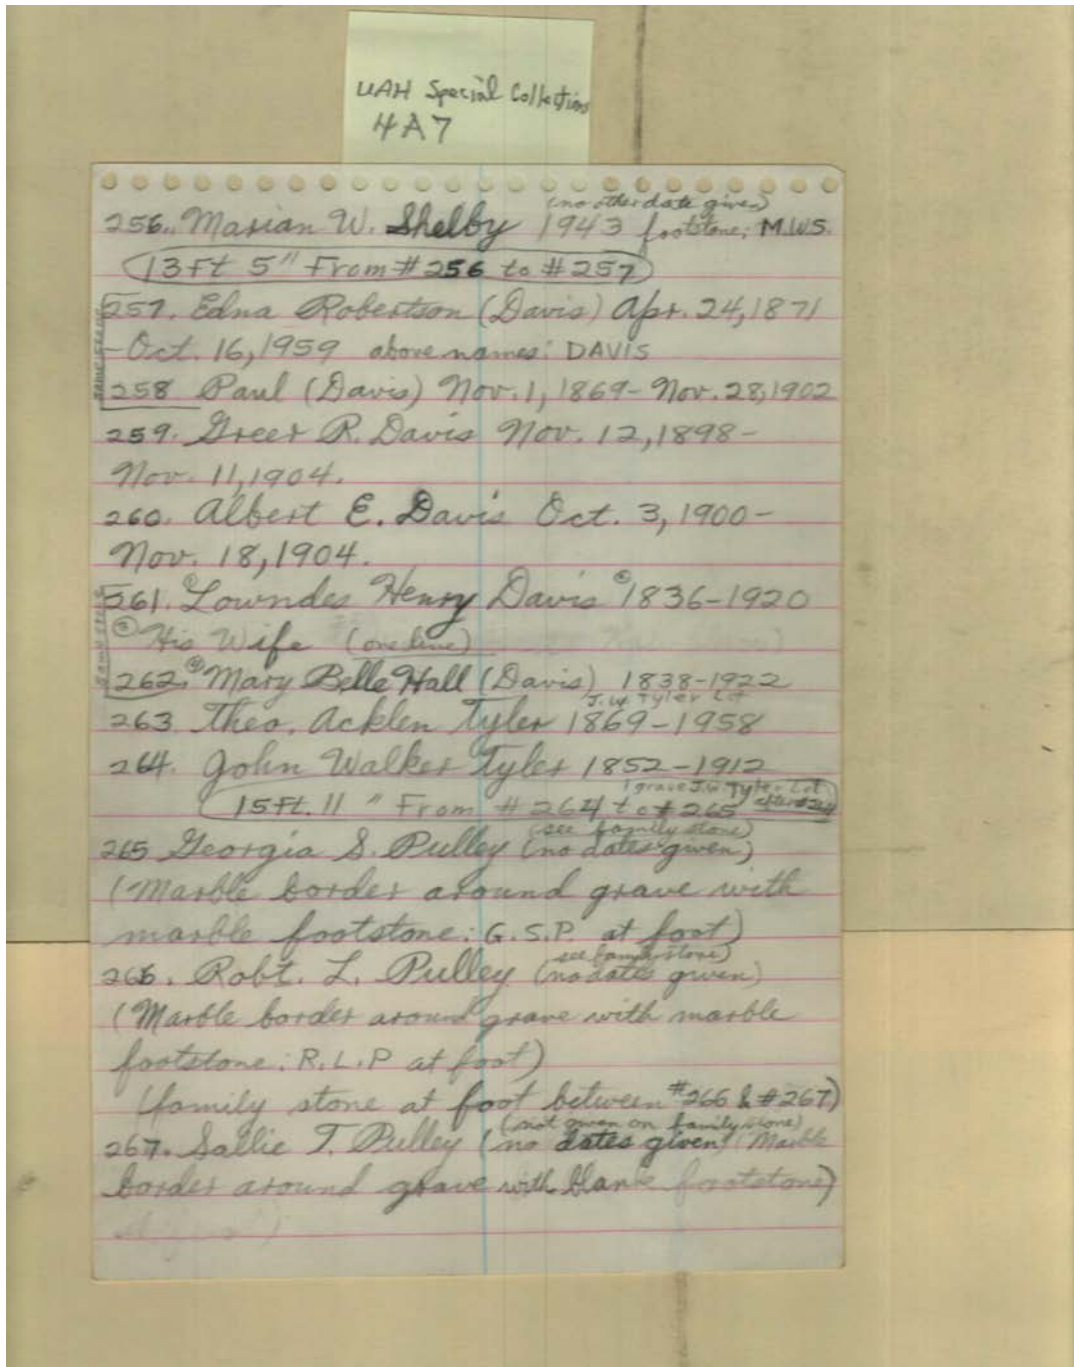 UAH Special Collections
4A7
(no other date given)
256. Marian W. Shelby 1943 footstone: M.W.S.
13Ft 5" From #256 to #257
257. Edna Robertson (Davis) Apr. 24, 1871
-Oct. 16, 1959 above names: DAVIS
258 Paul (Davis) Nov. 1, 1869- Nov. 28, 1902
259. Greer R. Davis Nov. 12, 1898-
Nov. 11, 1904.
260. Albert E. Davis Oct. 3, 1900-
Nov. 18, 1904.
261. Lowndes Henry Davis 1836-1920
His Wife (one line)
262. Mary Belle Hall (Davis) 1838-1922
J.W. Tyler Lot
263 Theo. Acklen Tyler 1869-1958
264. John Walker Tyler 1852-1912
1 grave J.W. Tyler Lot
15Ft. 11" From #264 to #265 after 264
(see family stone)
265 Georgia S. Pulley (no dates given)
(Marble border around grave with
marble footstone: G.S.P. at foot)
see family stone)
266. Robt. L. Pulley (no dates given)
(Marble border around grave with marble
footstone: R.L.P at foot)
(family stone at foot between #266 & #267)
(not given on family stone)
267. Sallie T. Pulley (no dates given) (Marble
border around grave with blank footstone)